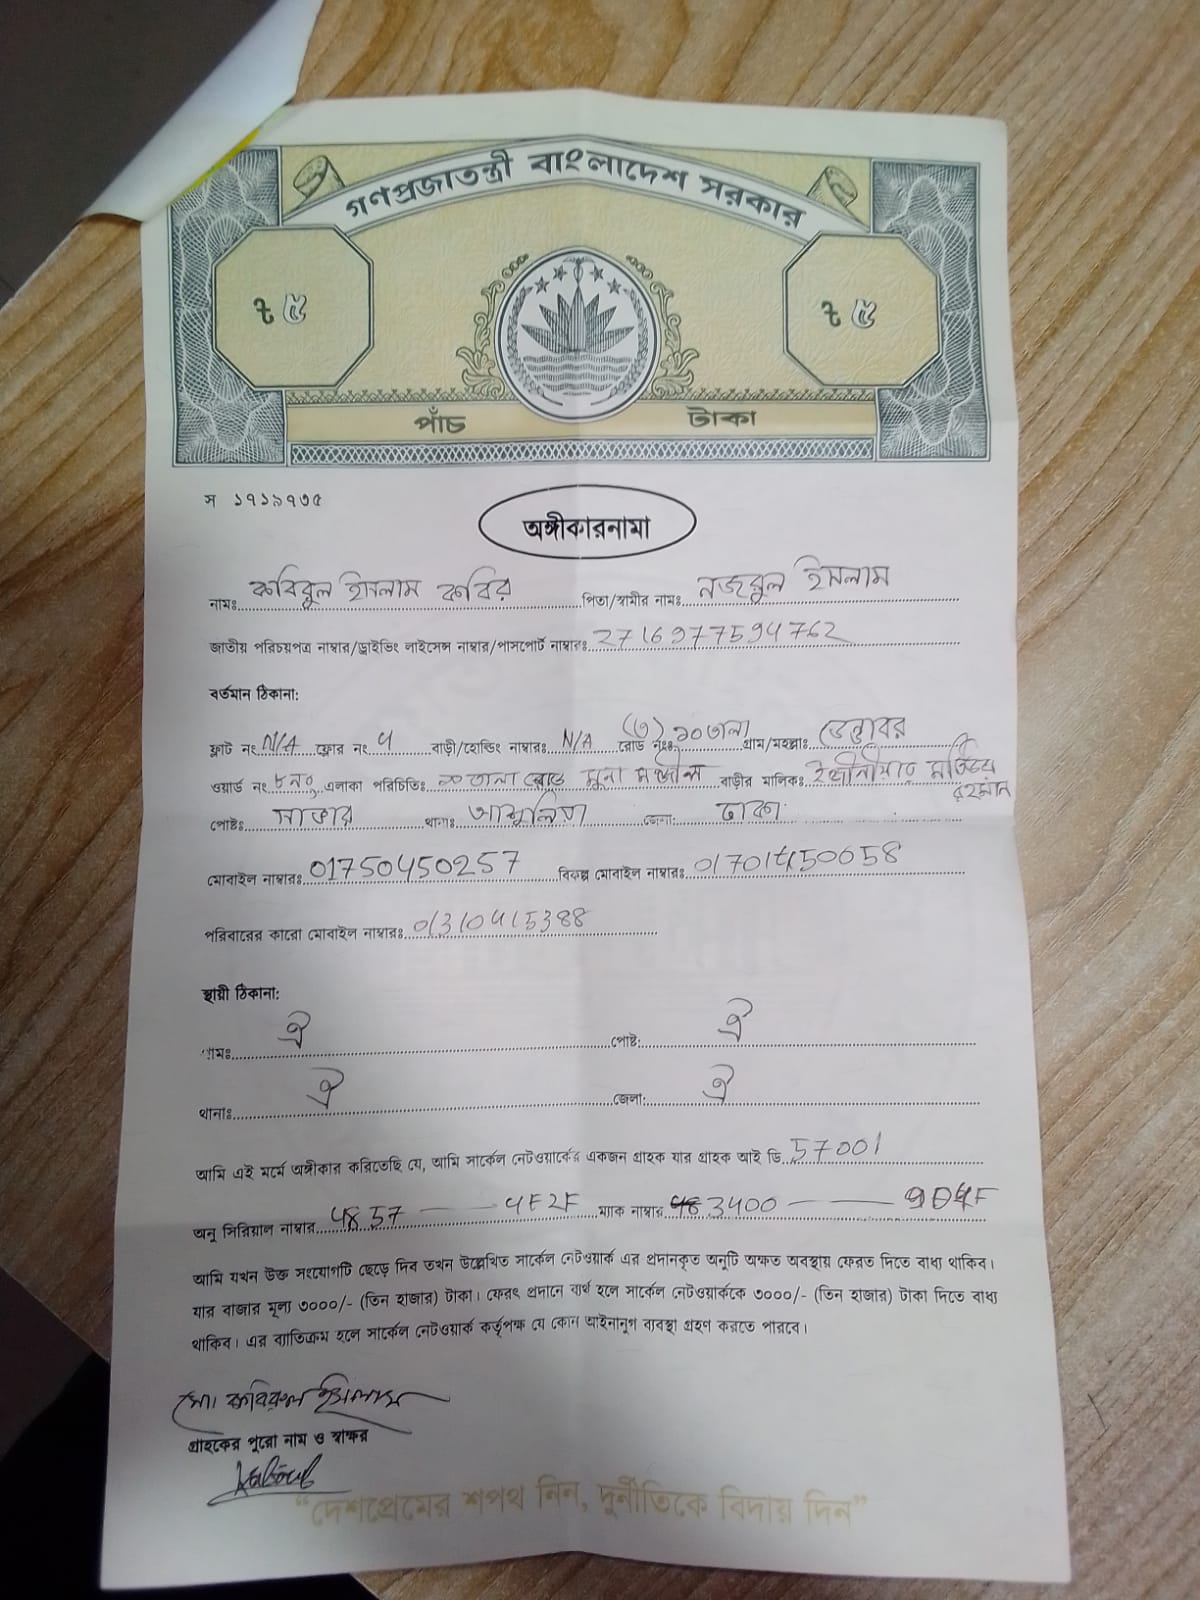 গণপ্রজাতন্ত্রী বাংলাদেশ সরকার
৳ ৫
৳ ৫
পাঁচ টাকা
স ১৭১৯৭৩৫
অঙ্গীকারনামা
নামঃ কবিরুল ইসলাম কবির পিতা/স্বামীর নামঃ নজরুল ইসলাম
জাতীয় পরিচয়পত্র নাম্বার/ড্রাইভিং লাইসেন্স নাম্বার/পাসপোর্ট নাম্বারঃ 2716977594762
বর্তমান ঠিকানা:
ফ্লাট নং N/A ফ্লোর নং ৭ বাড়ী/হোল্ডিং নাম্বারঃ N/A রোড নংঃ (৩) ১০ তালা গ্রাম/মহল্লাঃ ডেন্ডাবর
ওয়ার্ড নং ৮নং এলাকা পরিচিতিঃ ১০ তালা রোড মুনা মঞ্জীল বাড়ীর মালিকঃ ইঞ্জীনীয়ার রহমান
পোষ্টঃ সাভার থানাঃ আশুলিয়া জেলা: ঢাকা
মোবাইল নাম্বারঃ 01750450257 বিকল্প মোবাইল নাম্বারঃ 01701450058
পরিবারের কারো মোবাইল নাম্বারঃ 01310415388
স্থায়ী ঠিকানা:
গ্রামঃ ঐ পোষ্ট: ঐ
থানাঃ ঐ জেলা: ঐ
আমি এই মর্মে অঙ্গীকার করিতেছি যে, আমি সার্কেল নেটওয়ার্কের একজন গ্রাহক যার গ্রাহক আই ডি 57001
অনু সিরিয়াল নাম্বার 4857 —— 4F2F ম্যাক নাম্বার 3400 ——
আমি যখন উক্ত সংযোগটি ছেড়ে দিব তখন উল্লেখিত সার্কেল নেটওয়ার্ক এর প্রদানকৃত অনুটি অক্ষত অবস্থায় ফেরত দিতে বাধ্য থাকিব।
যার বাজার মূল্য ৩০০০/- (তিন হাজার) টাকা। ফেরৎ প্রদানে ব্যর্থ হলে সার্কেল নেটওয়ার্ককে ৩০০০/- (তিন হাজার) টাকা দিতে বাধ্য
থাকিব। এর ব্যাতিক্রম হলে সার্কেল নেটওয়ার্ক কর্তৃপক্ষ যে কোন আইনানুগ ব্যবস্থা গ্রহণ করতে পারবে।
মো। কবিরুল ইসলাম
গ্রাহকের পুরো নাম ও স্বাক্ষর
“দেশপ্রেমের শপথ নিন, দুর্নীতিকে বিদায় দিন”